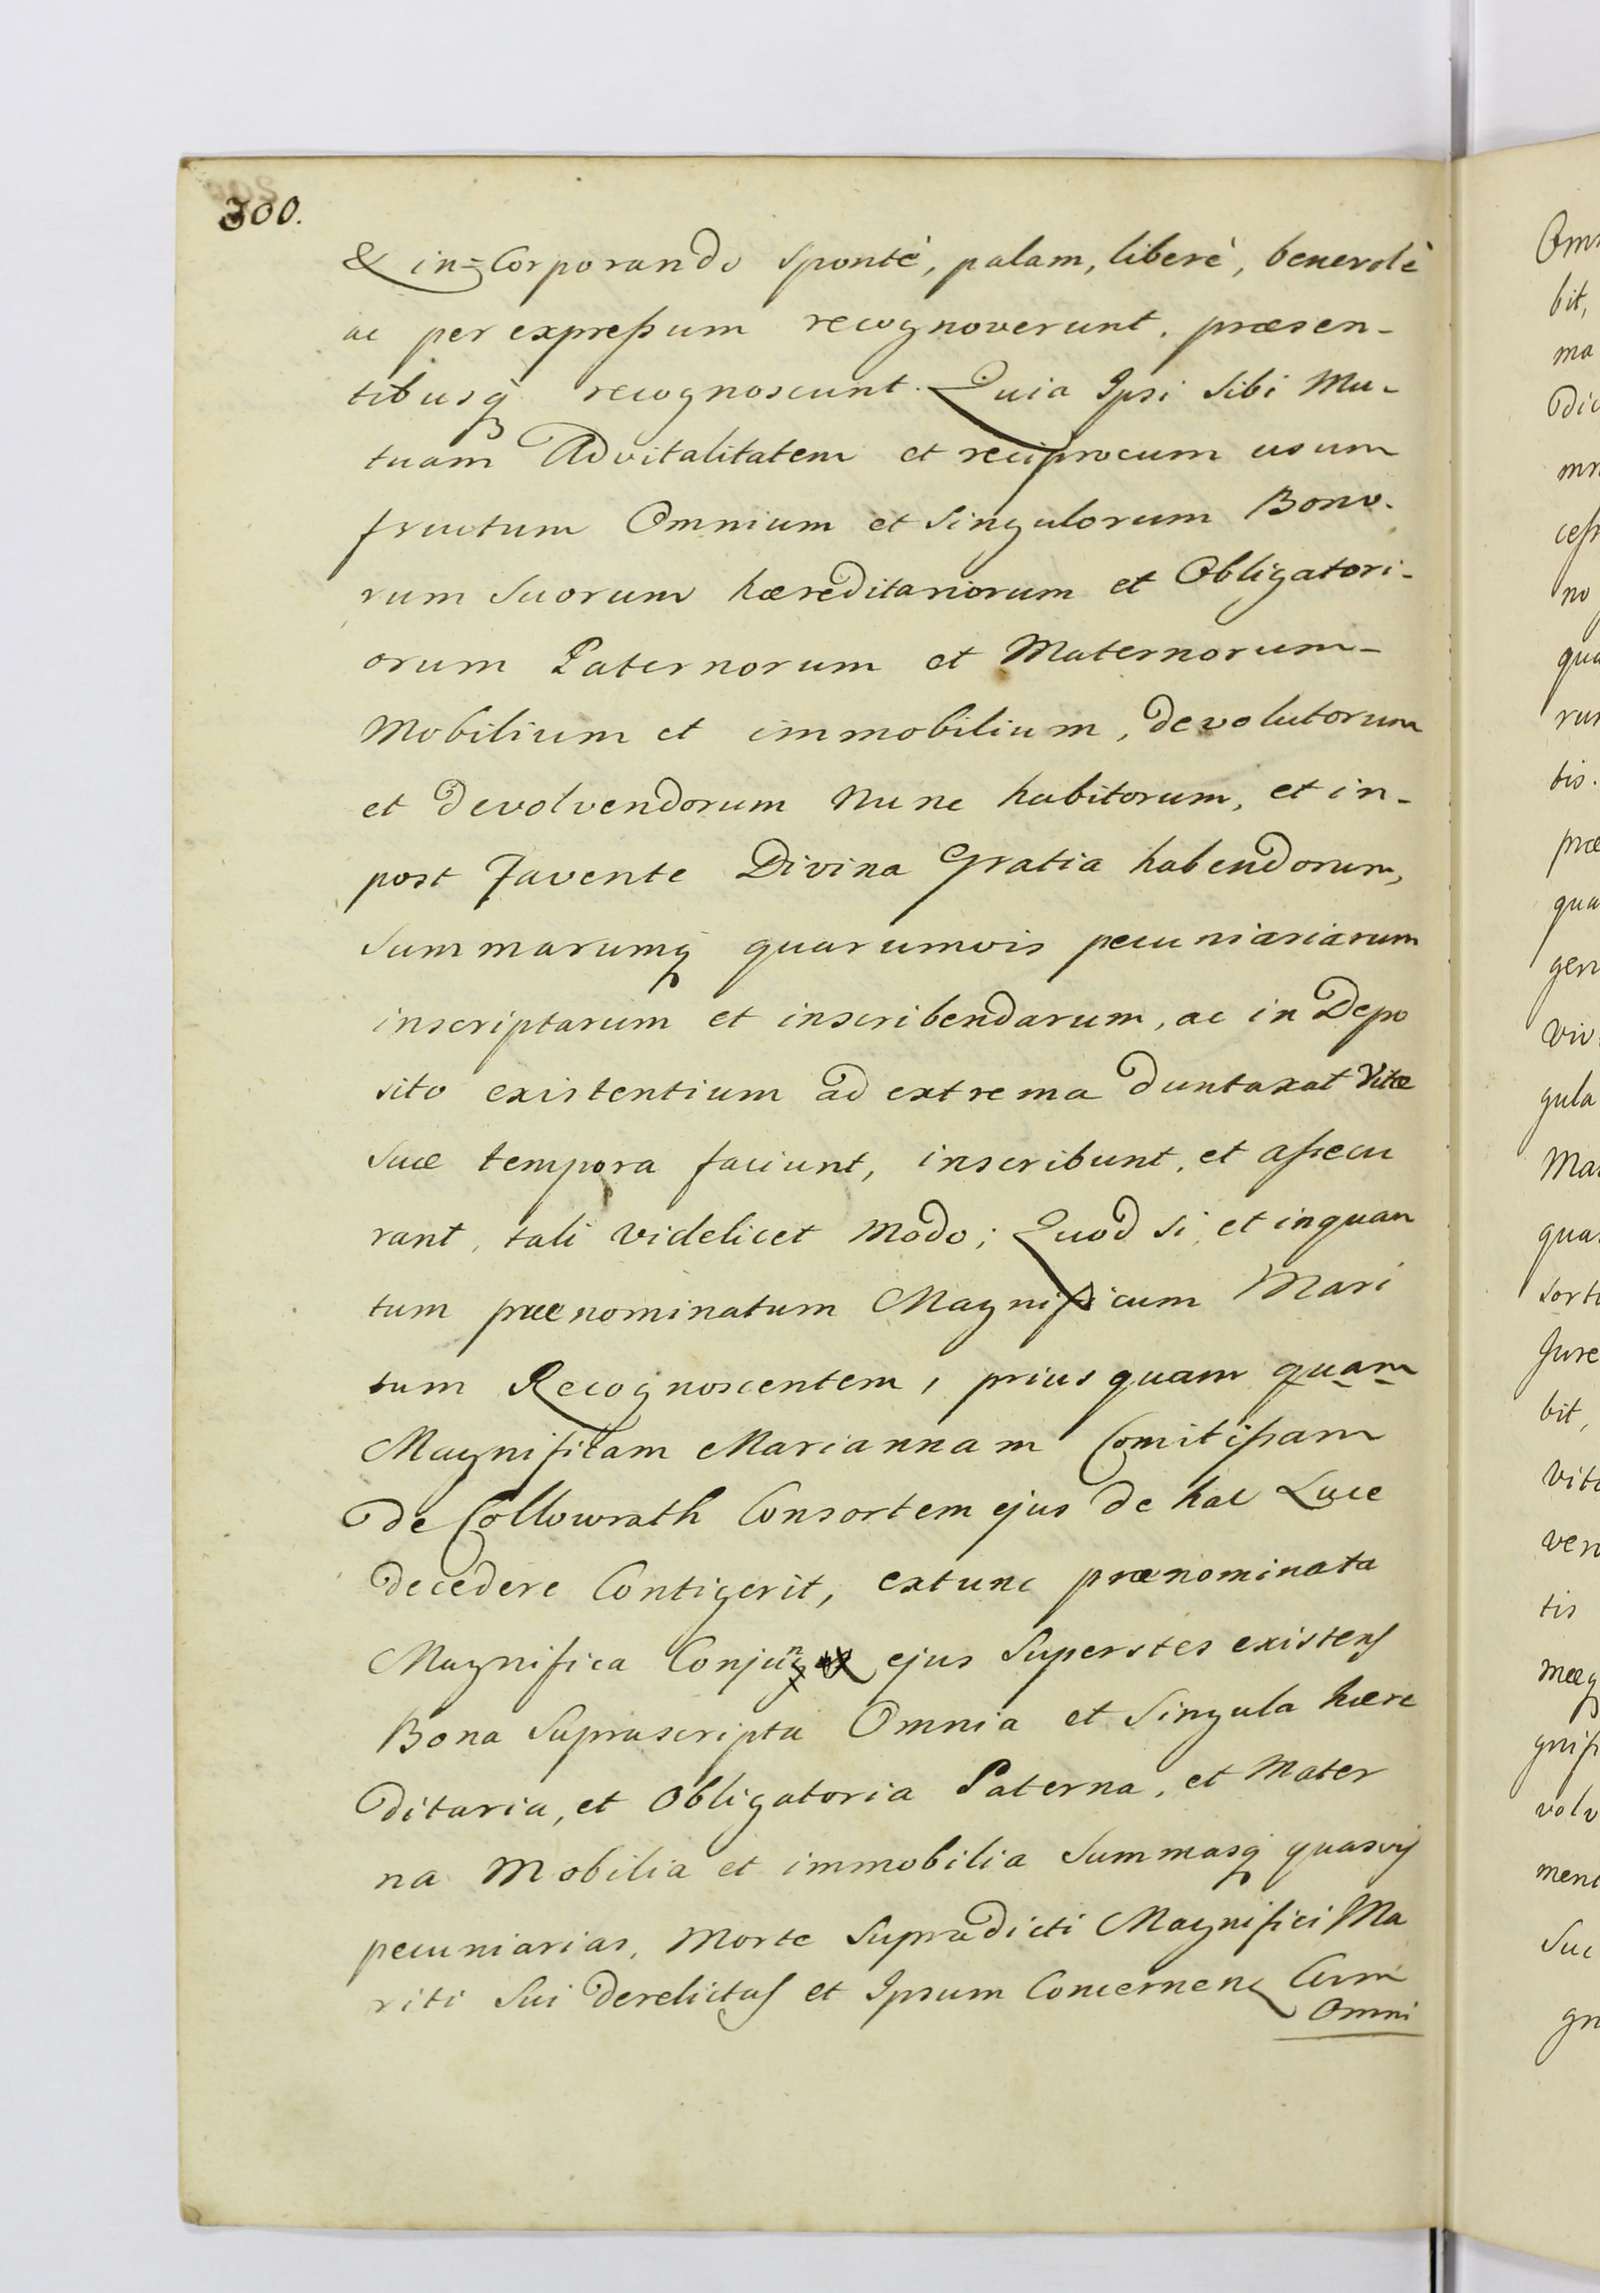 300.
& in=Corporando spontè, palam, liberè, benevolè
ac per expreſsum recognoverunt. præsen-
tibusq́ recognoscunt. Quia Ipsi Sibi Mu-
tuam Advitalitatem et reciprocum usum
fructum Omnium et Singulorum Bono-
rum Suorum hæreditariorum et Obligatori-
orum Paternorum et Maternorum-
Mobilium et immobilium, devolutorum
et devolvendorum Nunc habitorum, et in-
post favente Divina Gratia habendorum,
Summarumq́ quarumvis pecuniariarum
inscriptarum et inscribendarum, ac in Depo
sito existentium ad extrema duntaxat Vitæ
Suæ tempora faciunt, inscribunt, et aſsecu
rant, tali videlicet Modo; Quod si, et inquan
tum prænominatum Magnificum Mari
tum Recognoscentem, prius quam quam
Magnificam Mariannam Comitiſsam
de Collowrath Consortem ejus de hac Luce
decedere Contigerit, extunc prænominata
Magnifica Conjunx ejus Superstes existens
Bona Suprascripta Omnia et Singula hære
ditaria, et Obligatoria Paterna, et Mater
na Mobilia et immobilia Summasq́ quasvis
pecuniarias, Morte Supradicti Magnifici Ma
riti Sui derelictas et Ipsum Concernen Cum
Omni
Om
bit,
ma
Dic
ceſs
no
qua
rum
tis.
præ
qua
gen
viv
gula
Ma
qua
sort
Jure
bit,
vita
ven
tis
gnifi
volv
ment
Suc
gn